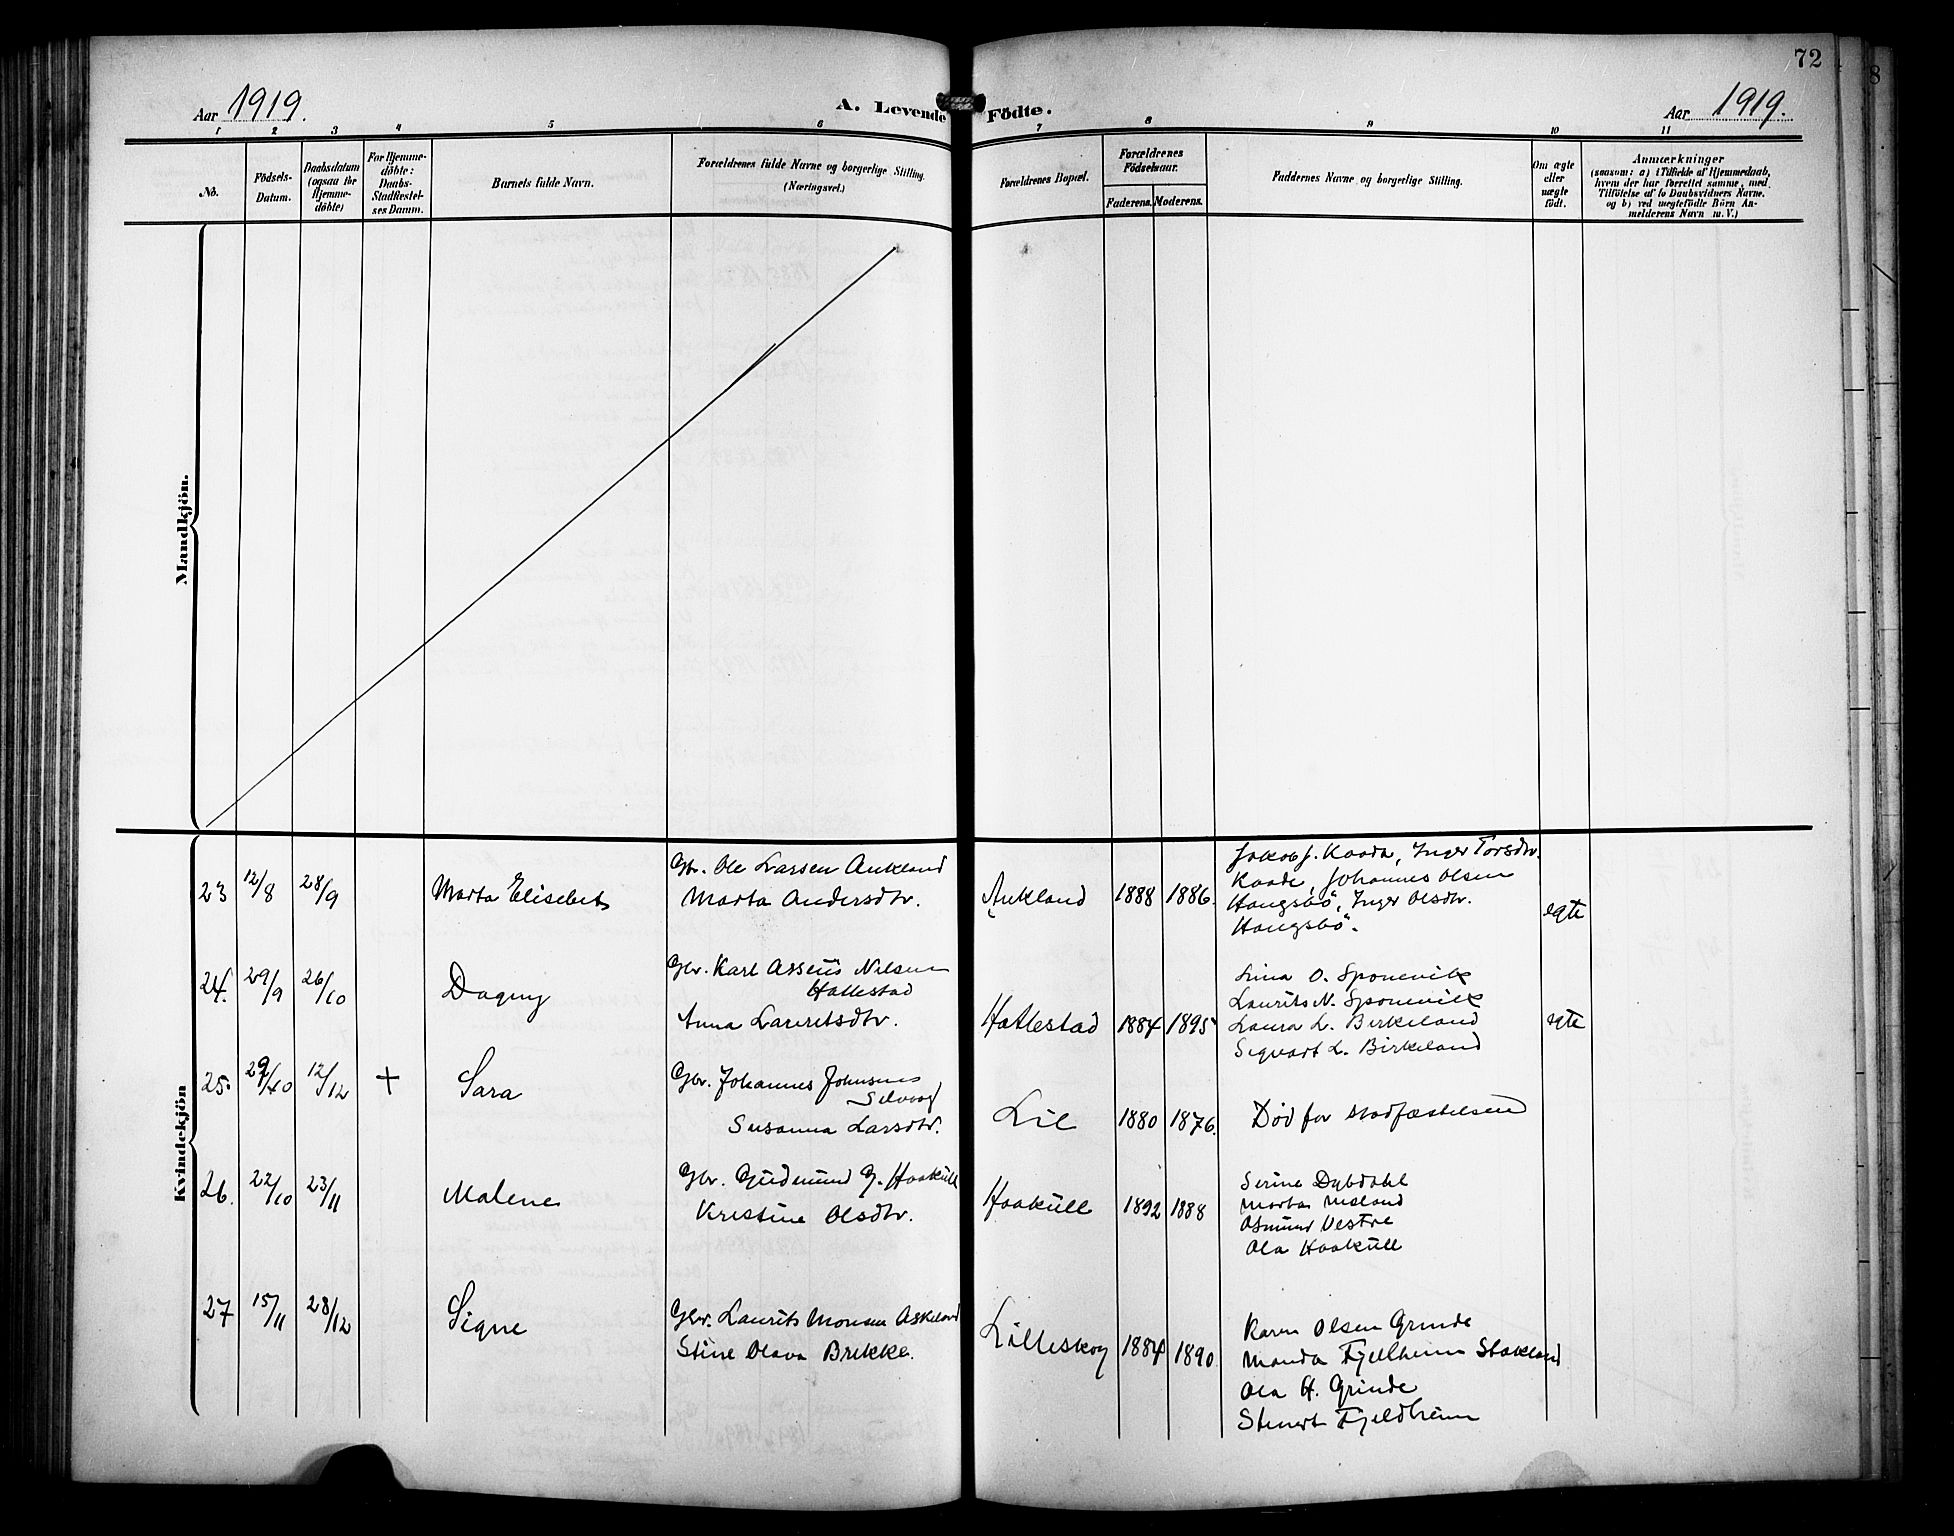 72
8
Aar 1919.
A. Levende Fødte.
Aar 1919.
1 2 3 4 5 6 7 8 9 10 11
No.
Fødsels-
Datum.
Daabsdatum
(ogsaa for
Hjemme-
døbte)
For Hjemme-
døbte:
Daabs-
Stadfæstel-
ses Datum.
Barnets fulde Navn.
Forældrenes fulde Navne og borgerlige Stilling.
(Næringsvei.)
Forældrenes Bopæl.
Forældrenes
Fødselsaar.
Faderens. Moderens.
Faddernes Navne og borgerlige Stilling.
Om ægte
eller
uægte
født.
Anmærkninger
(saasom: a) i Tilfælde af Hjemmedaab,
hvem der har forrettet samme, med
Tilføielse af to Daabsvidners Navne.
og b) ved uægtefødte Börn An-
melderens Navn m. V.)
Mandkjön.
Kvindekjön
23 12/8 28/9 Marta Elisebet
Gbr. Ole Larsen Aukland
Marta Andersdtr.
Aukland 1888 1886.
Jakob J. Kaada, Inger Torsdtr.
Kaade, Johannes Olsen
Haugsbö, Inger Olsdtr.
Haugsbö.
egte
24. 29/9 26/10 Dagny
Gbr. Karl Asseüs Nilsen
Hattestad
Anna Lauritsdtr.
Hattestad 1884 1895
Lina O. Sponevik
Laurits N. Sponevik
Laura L. Birkeland
Sigvart L. Birkeland
egte
25. 29/10 12/12 + Sara
Gbr. Johannes Johnsen
Silvaag
Susanna Larsdtr.
Lil 1880 1876.
Død før stadfæstelsen
26. 22/10 23/11 Malene
Gbr. Güdmünd G. Haaküll
Kristine Olsdtr.
Haaküll 1892 1888
Serine Dybdahl
Marta Mæland
Osmund Vestre
Ola Haaküll
27 15/11 28/12 Signe
Gbr. Laurits Monsen Askeland
Stine Olava Brekke.
Lilleskog 1884 1890
Karen Olsen Grinde
Manda Fjellheim Stakland
Ola H. Grinde
Fjeldheim